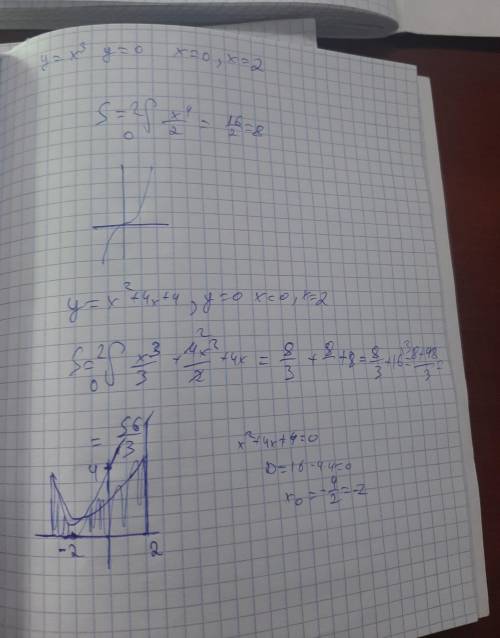 y = x³ y = 0 x = 0, x = 2
S = ²₀∫ x⁴/2 = 16/2 = 8
y = x² + 4x + 4, y = 0 x = 0, x = 2
S = ²₀∫ x³/3 + 4x²/2 + 4x = 8/3 + 8 + 8 = 8/3 + 16 = 8+48/3 =
= 56/3
x² + 4x + 4 = 0
4
D = 16 - 4·4 = 0
x₀ = -4/2 = -2
-2 2